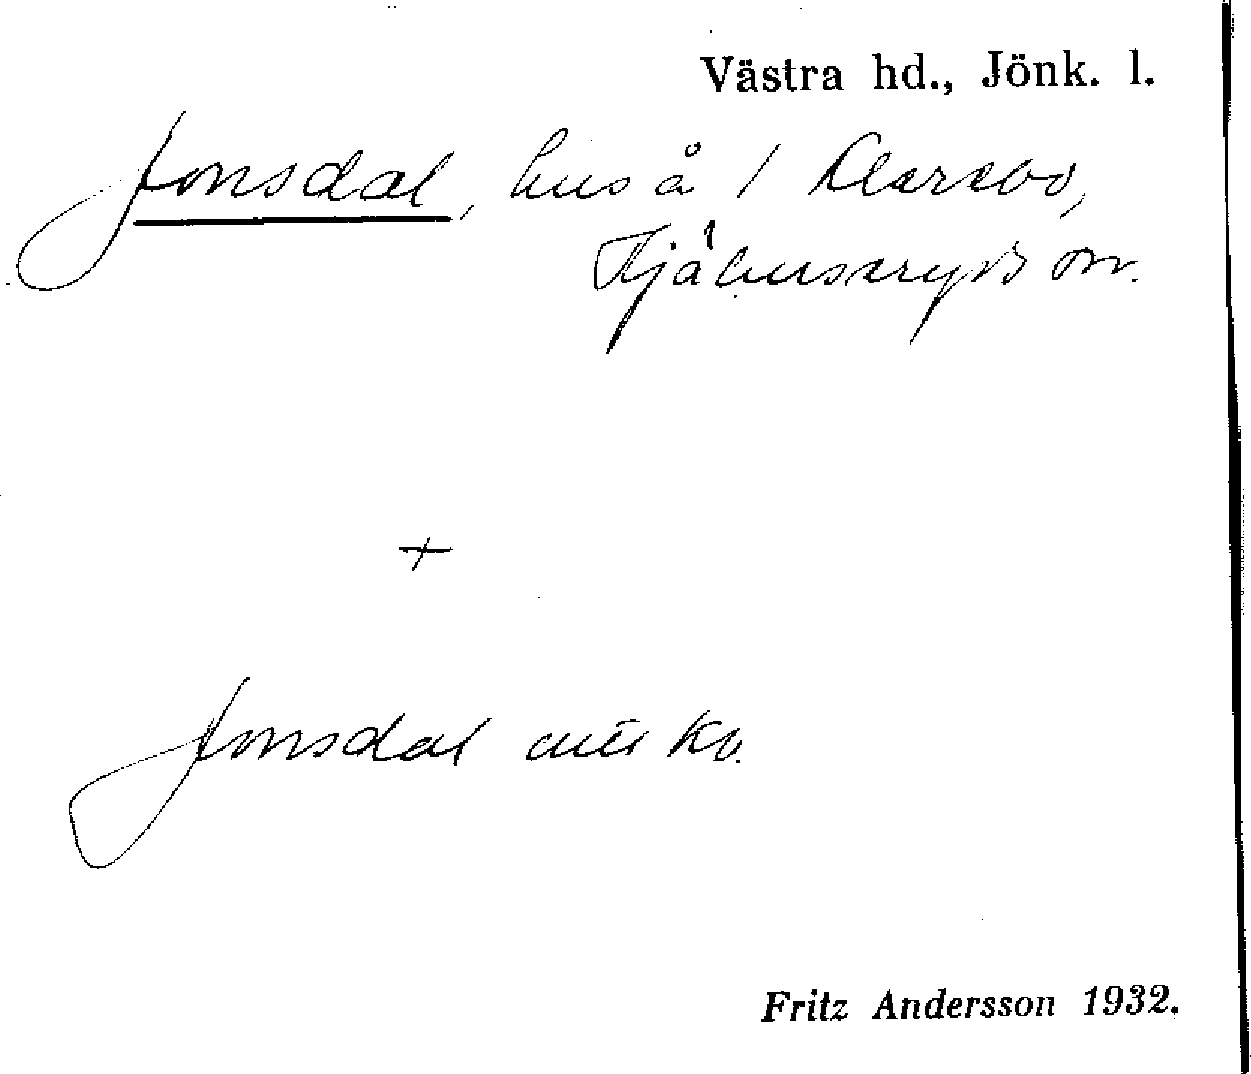 Västra hd., Jönk. l.
Jonsdal, hus å 1 Klarebo,
Hjälmseryds sn.
+
Jonsdal enl. kb.
Fritz Andersson 1932.